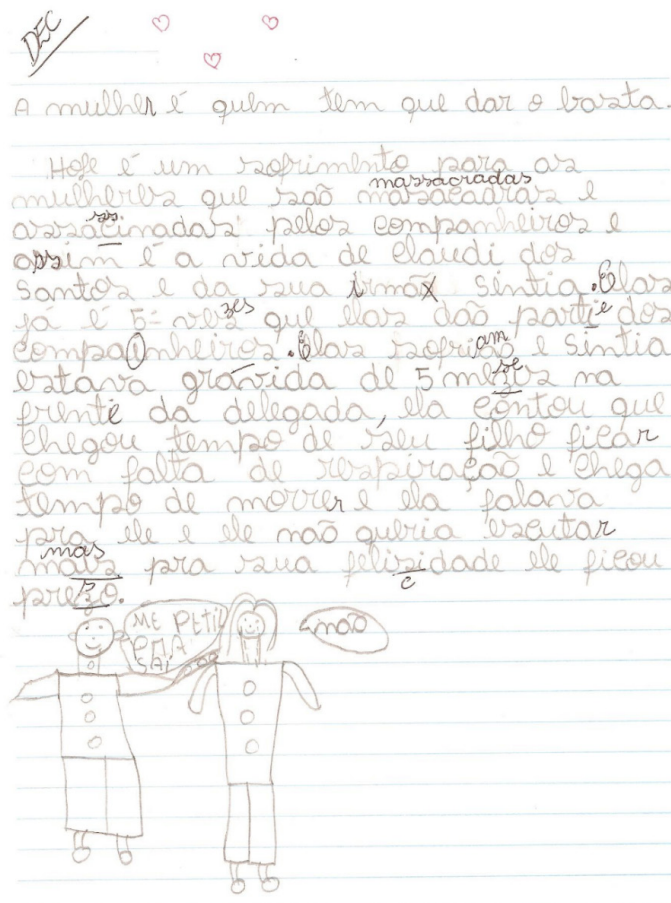 DEC
A mulher é quem tem que dar o basta.
Hoje é um sofrimento para as
massacradas
mulheres que saõ masacadras e
ss
assacinadas pelos companheiros e
assim é a vida de claudi dos
Santos e da sua irmãx sintia. Elas
zes
já é 5ª vez que elas daõ parte dos
companheiros. Elas sofriam e Sintia
am
se
estava grávida de 5 meses na
frente da delegada, ela contou que
chegou tempo de seu filho ficar
com falta de respiraçaõ e chega
tempo de morrer e ela falava
pra ele e ele naõ queria escutar
mas
mais pra sua felisidade ele ficou
c
prezo.
s
ME PETIL
PRA
SAI
naõ